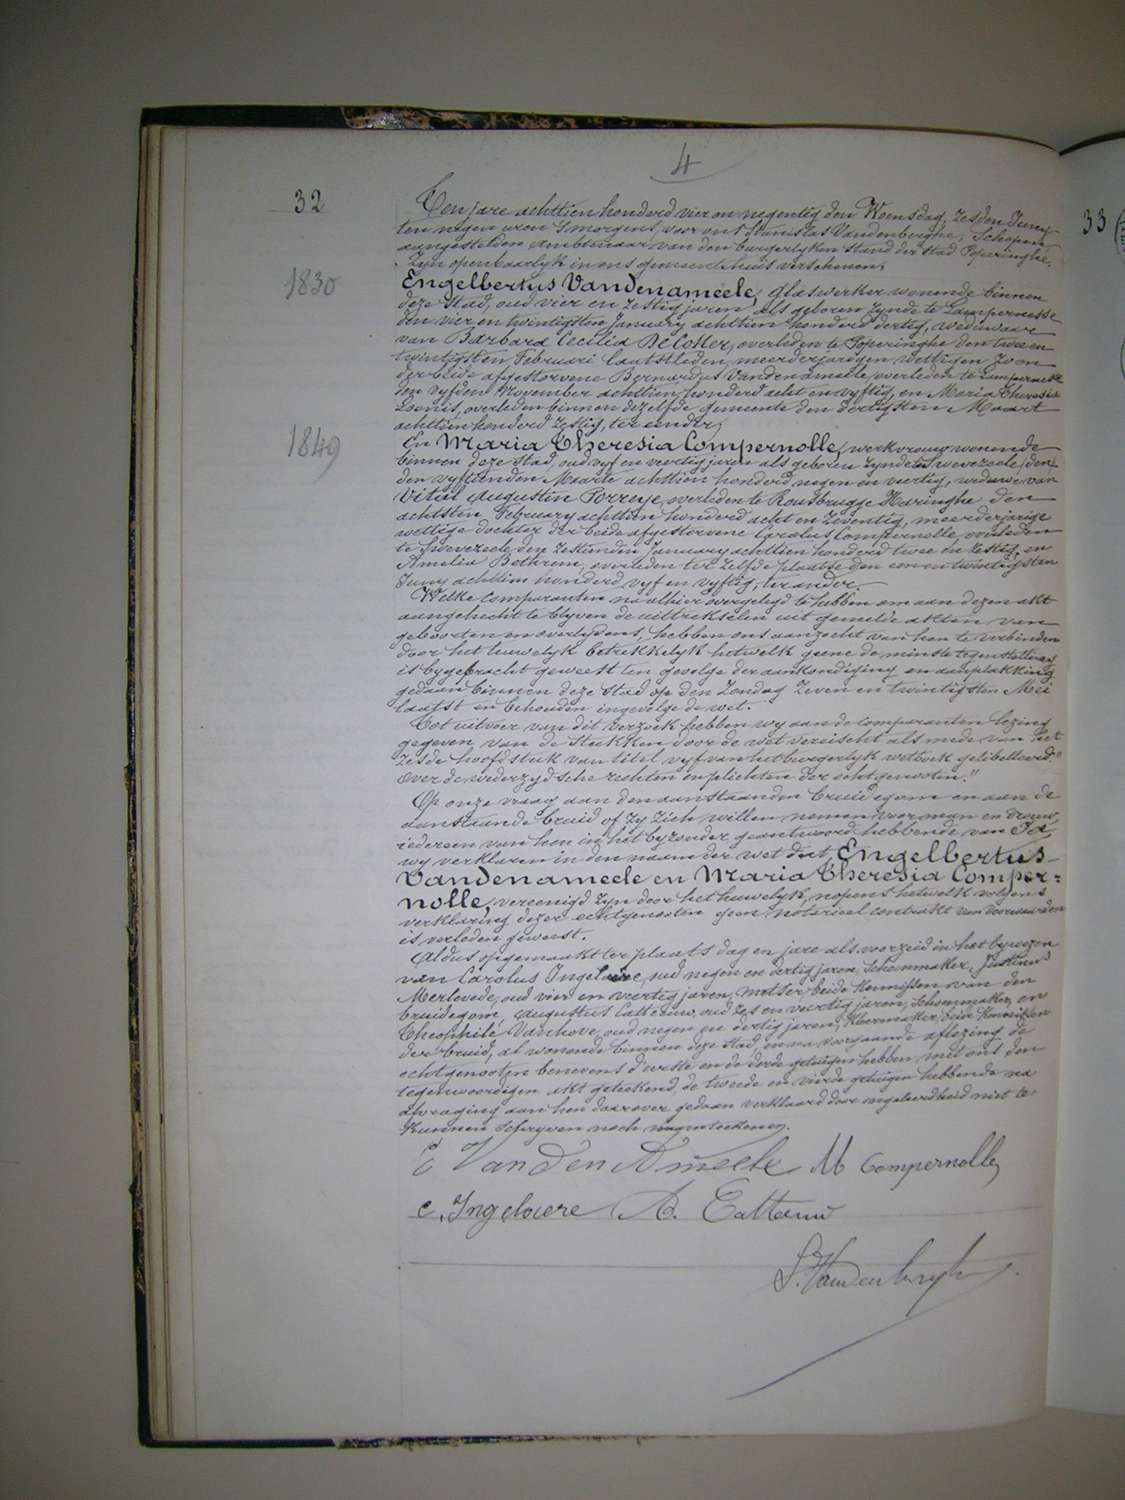 4
32
Ten jare achttien honderd vier en negentig den Woensdag, zesden Juny
ten negen uren 's morgens, voor ons Stanislas Vandenberghe, Schepen,
aangestelden ambtenaar van den burgerlyken stand der stad Poperinghe,
zyn openbaarlyk in ons gemeentehuis verschenen:
1830
Engelbertus Vandenameele, glaswerker wonende binnen
deze stad, oud vier en zestig jaren als geboren zynde te Lampernesse
den vier en twintigsten January achttien honderd dertig, weduwaar
van Barbara Cecilia De Coker, overleden te Poperinghe den twee en
twintigsten Februari laatstleden, meerderjarigen wettigen zoon
der beide afgestorvene Bernardus Vandenameele, overleden te Lampernesse
den vyfden November achttien honderd acht en vyftig, en Maria Theresia
overleden binnen dezelfde gemeente den dertigsten Maart
achttien honderd zestig, ter eender;
1849
En Maria Theresia Compernolle, werkvrouw wonende
binnen deze stad, oud vyf en veertig jaren als geboren zynde te Swevezeele, den
den vyftienden Maarte achttien honderd negen en veertig, weduwe van
Vital Augustin Porreye, overleden te Rousbrugge Haringhe den
achtsten February achttien honderd acht en zeventig, meerderjarige
wettige dochter der beide afgestorvene Carolus Compernolle, overleden
te Swevezeele den zestienden January achttien honderd twee en zestig, en
Amelia Bethrem, overleden ter zelfde plaatse den een en twintigsten
Juny achttien honderd vyf en vyftig, ter ander.
Welke comparanten na alhier overgelegd te hebben om aan dezen akt
aangehecht te blyven de uittrekselen uit gemelde akten van
geboorten en overlydens, hebben ons aanzocht van hen te verbinden
door het huwelyk betrekkelyk hetwelk geene de minste tegenstelling
is bygebracht geweest ten gevolge der aankondiging en aanplakking
gedaan binnen deze stad op den Zondag zeven en twintigsten Mei
laatst en behouden ingevolge de wet.
Tot uitvoer van dit verzoek hebben wy aan de comparanten lezing
gegeven van de stukken door de wet vereischt als mede van het
zesde hoofdstuk van titel vyf van het burgerlyk wetboek gelibelleerd:"
over de wederzydsche rechten en plichten der echtgenooten."
Op onze vraag aan den aanstaanden bruidegom en aan de
aanstaande bruid of zy zich willen nemen voor man en vrouw,
iedereen van hen in het byzonder geantwoord hebbende van Ja,
wy verklaren in den naam der wet dat Engelbertus
Vandenameele en Maria Theresia Comper=
nolle, vereenigd zyn door het huwelyk, nopens hetwelk volgens
verklaring dezer echtgenooten geen notarieel contrakt van voorwaarden
is verleden geweest.
Aldus opgemaakt ter plaats dag en jare als voorzeid in het bywezen
van Carolus Ingelaere, oud negen en dertig jaren, Schoenmaker, Justinus
Merlevede, oud vier en veertig jaren, metser, beide kennissen van den
bruidegom, Augustus Catteeuw, oud zes en veertig jaren, Schoenmaker, en
Theophile Vanhove, oud negen en dertig jaren, beide kennissen
der bruid, al wonende binnen deze stad, en na voorgaande aflezing de
echtgenooten benevens d'eerste en de derde getuigen hebben met ons den
tegenwoordigen akt geteekend, de tweede en vierde getuigen hebbende na
afvraging aan hen daarover gedaan verklaard door ongeleerdheid niet te
kunnen schryven noch naamteekenen.
E Van Den Ameele M Compernolle
C. Ingelaere A. Catteeuw
S. Vandenberghe
33